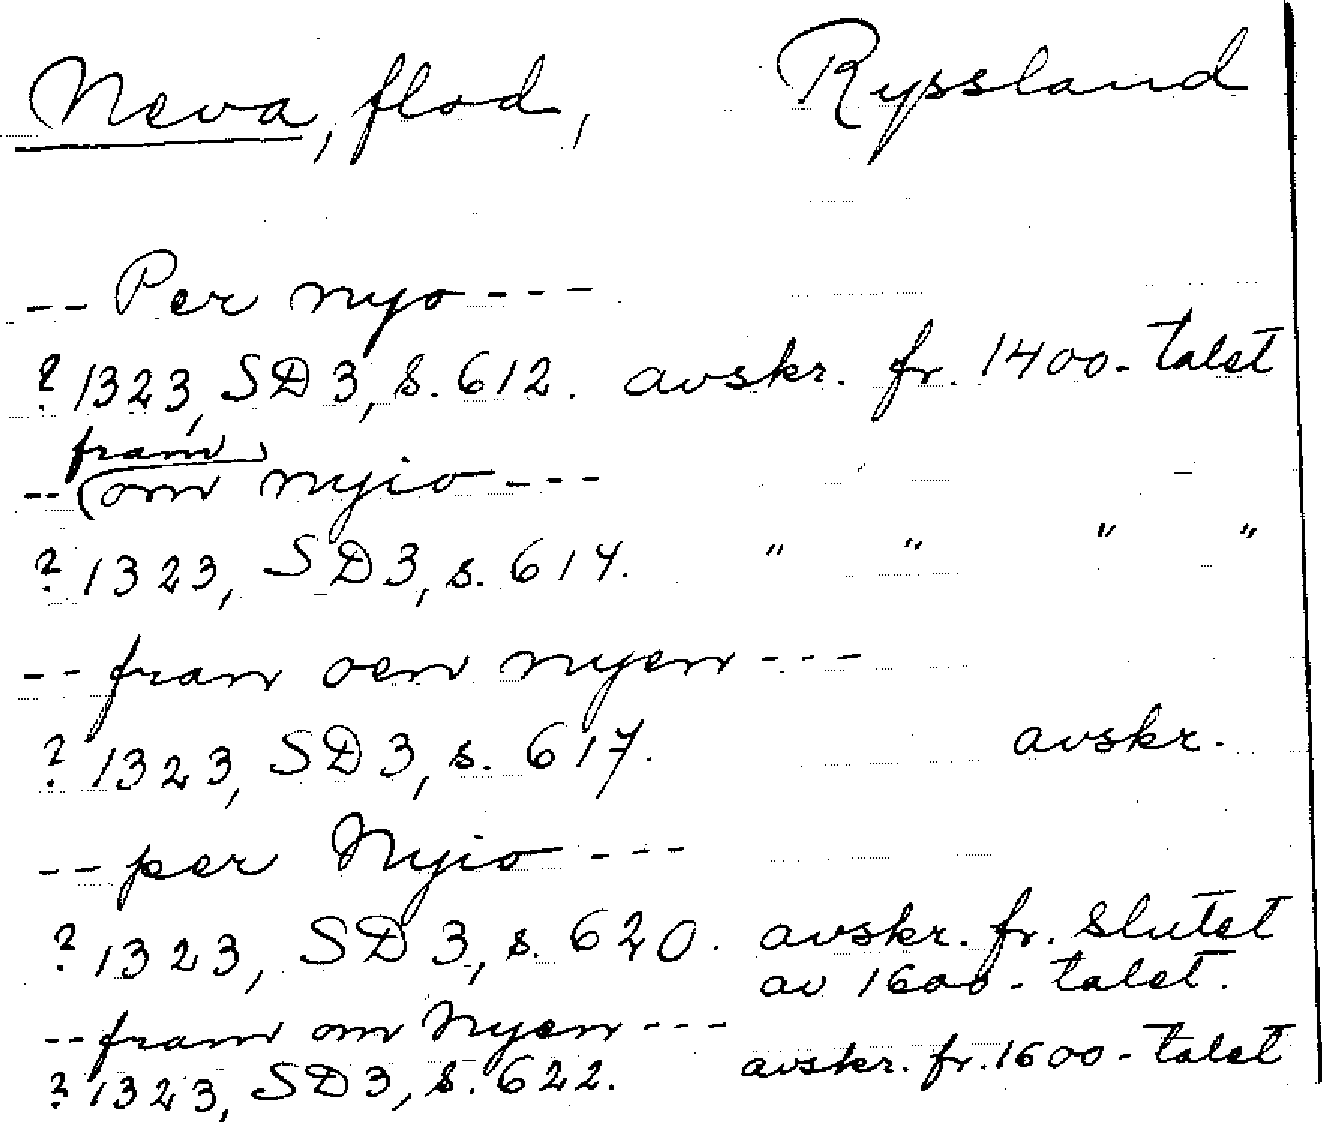 Neva, flod, Ryssland
-- Per nyo ---
? 1323, SD 3, s. 612. avskr. fr. 1400-talet
fram
-- (om nyio ---
? 1323, SD 3, s. 614. " " " "
-- fram oen nyen ---
? 1323, SD 3, s. 617. avskr.
-- per Nyio ---
? 1323, SD 3, s. 620. avskr. fr. slutet
av 1600-talet.
-- fram om Nyen ---
? 1323, SD 3, s. 622. avskr. fr. 1600-talet